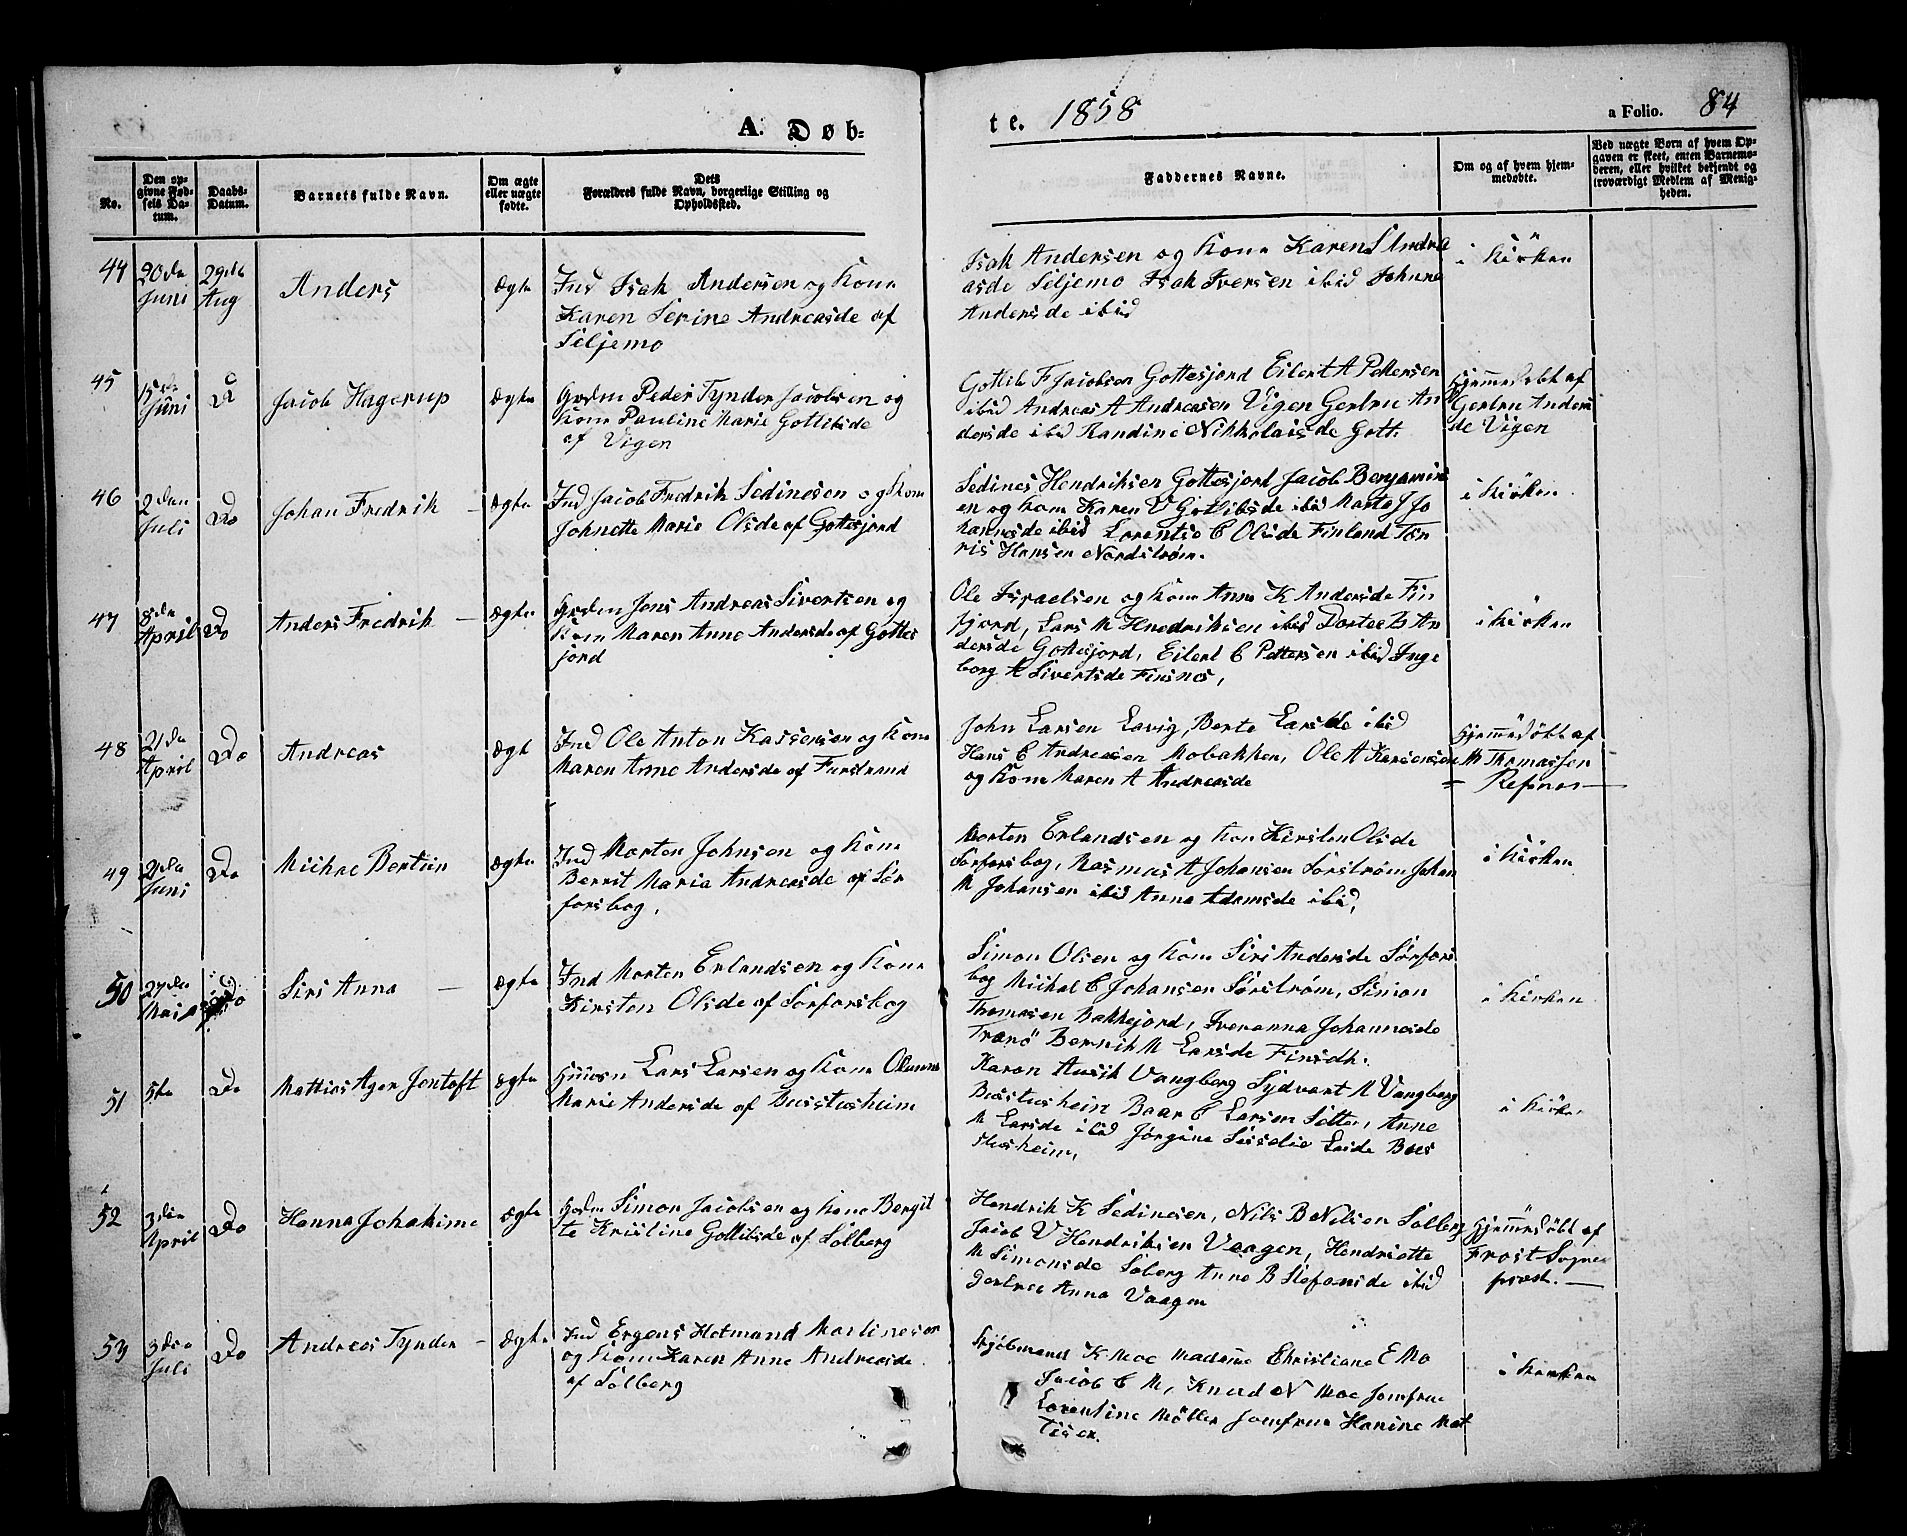 A. Døb=
te. 1858
a Folio. 84
No.
Den op-
givne Fød-
sels Da-
tum.
Daabs-
Datum.
Barnets fulde Navn.
Om ægte
eller uægte
fødte.
Dets
Forældres fulde Navn, borgerlige Stilling og
Opholdssted.
Faddernes Navne.
Om og af hvem hjem-
medøbte.
Ved uægte Børn af hvem Op-
gaven er skeet, enten Barnemo-
deren, eller hvilket bekjendt og
troværdigt Medlem af Menig-
heden.
44
20de
Juni
29de
Aug
Anders
Ægte
Ind Isak Andersen og Kone
Karen Serine Andreasde af
Siljemo
Isak Andersen og Kone Karen S Andre
asde Siljemo Isak Iversen ibid Johnna
Andersde ibid
i Kirken
45
Juni
Do
Jacob Hagerup
Ægte
Grdm Peder Tynder Jacobsen og
Kone Pauline Marie Gottlibsde
af Vigen
Gotlib F Jacobsen Gottesjord Eilert A Pettersen
ibid Andreas A Andreasen Vigen Gertru An
dersde ibid Randine Nikkolaisde Gott:
Hjemmedøbt af
Gertru Anders
de Vigen
46
2den
Juli
Do
Johan Fredrik
Ægte
Ind Jacob Fredrik Sedinesen og Kone
Johnette Marie Olsde af Gottesjord
Sedines Hendriksen Gottesjord Jacob Benjamins
en og Kone Karen V Gotlibsde ibid Marta J Jo
hannesde ibid Lorentse C Olsde Finland Tør
ris Hansen Nordstrøm.
i Kirken
47
8de
April
Do
Anders Fredrik
Ægte
Grdm Jens Andreas Sivertsen og
Kone Maren Anne Andersde af Gottes
jord
Ole Israelsen og Kone Anne K Andersde Fin
fjord, Lars M Hnedriksen ibid Dortee B An
dersde Gottesjord, Eilert C Pettersen ibid Inge
borg A Sivertsde Finsnes,
i Kirken
48
21de
April
Do
Andreas
Ægt
Ind Ole Anton Kassensen og Kone
Maren Anne Andersde af Furstrand
John Larsen Lavig, Berte Larsde ibid
Hans C Andreasen Mobakken, Ole A
og Kone Maren A Andreasde
Hjemmedøbt af
M Thomassen
Refsnes
49
2de
Juni
Do
Michae Bertin
Ægte
Ind Morten Johnsen og Kone
Berrit Maria Andreasde af Sør
forsbog,
Morten Erlandsen og Kon Kirsten Olsde
Sørforsbog, Rasmus A Johansen Sørstrøm Johan
M Johansen ibid Anna Adamsde ibid,
i Kirken
50
27de
Mai
Do
Siri Anna
Ægte
Ind Morten Erlandsen og Kone
Kirsten Olsde af Sørforsbog
Simon Olsen og Kone Siri Andersde Sørfors
bog Michal C Johansen Sørstrøm, Simon
Thomasen Bakkejord, Iveranna Johannesde
Tranö Bernit M Larsde Finsdh:
i Kirken
51
5te
Do
Mattias Ager Jentoft
Ægte
Husm Lars Larsen og Kone Olianna
Marie Andersde af Busstusheim
Karen Husik Vangberg Sydvart M Vangberg
Bustushein Baar C Larsen Setter, Anne
M Larsde ibid Jørgine Sissélie Larsde Bus
stusheim,
i Kirken
52
3die
April
Do
Hanna Johakime
Ægte
Grdm Simon Jacobsen og Kone Bergit
te Kristine Gottlibsde af Solberg
Hendrik K Sedinesen, Nils B Nilsen Solberg
Jacob V Hendriksen Vaagen, Hendriette
M Simonsde Solberg Anne B Stefansde ibid
Gertrue Anna Vaagen
Hjemmedöbt af
Frost Sogne
præst.
53
3die
Juli
Do
Andreas Tynder
Ægte
Ind Ergens Hetmand Martinesen
og Kone Karen Anne Andreasde
af Solberg
K Moe Madame Christiane E Mo
Jacob C M, Knud N Moe Jomfrue
Lorentine Møller Jomfrue Hanine Mat
tisen.
i Kirken